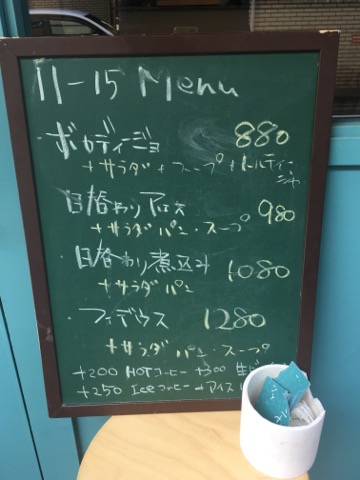 11-15 Menu
・ボカディージョ 880
+サラダ+スープ+トルティージャ
日替わりアロス 980
+サラダ パン・スープ
・日替わり煮込み 1080
+サラダ パン
・フィデウス 1280
+サラダ パン・スープ
+200 HOTコーヒー +300 生ビ
+250 Iceコーヒー +アイス